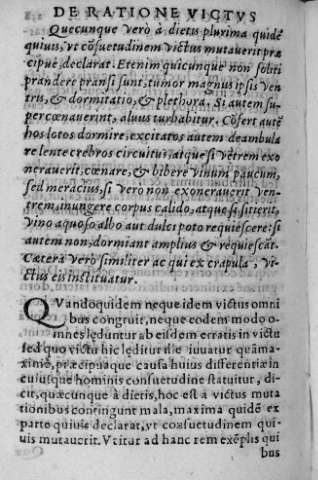 DE RATIONE VICTVS
Quecunque verò à dietis plurima quidẽ
quiuis, vt cõsuetudinem victus mutauerit præ
cipuè, declarat. Etenim quicunque non soliti
prandere pransi sunt, tumor magnus ipsis ven
tris, & dormitatio, & plethora. Si autem su-
percœnauerint, aluus turbabitur. Cõfert autẽ
hos lotos dormire, excitatos autem deambula
re lente crebros circuitus, atque si vẽtrem exo
nerauerit, cœnare, & bibere vinum paucum,
sed meracius, si verò non exonerauerit ven-
trem, inungere corpus calido, atque si sitierit,
vino aquoso albo aut dulci poto requiescere: si
autem non, dormiant amplius & requiescãt.
Cætera verò similiter ac qui ex crapula, vi-
ctus eis instituatur.
QVandoquidem neque idem victus omni
bus congruit, neque eodem modo o-
mnes lęduntur ab eisdem erratis in victu
sed quo victu hic lęditur ille iuuatur quàma-
ximè, præcipuaque causa huius differentiæ in
cuiusque hominis consuetudine statuitur, di-
cit, quæcunque à dietis, hoc est à victus muta
tionibus contingunt mala, maxima quidẽ ex
parte quiuis declarat, vt consuetudinem qui-
uis mutauerit. Vtitur ad hanc rem exẽplis qui
bus